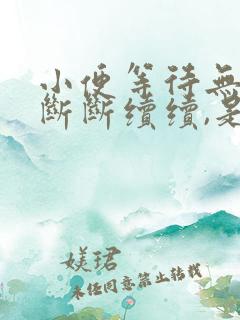 小便等待無
斷斷續續,是
媄珺
未經同意禁止轉載